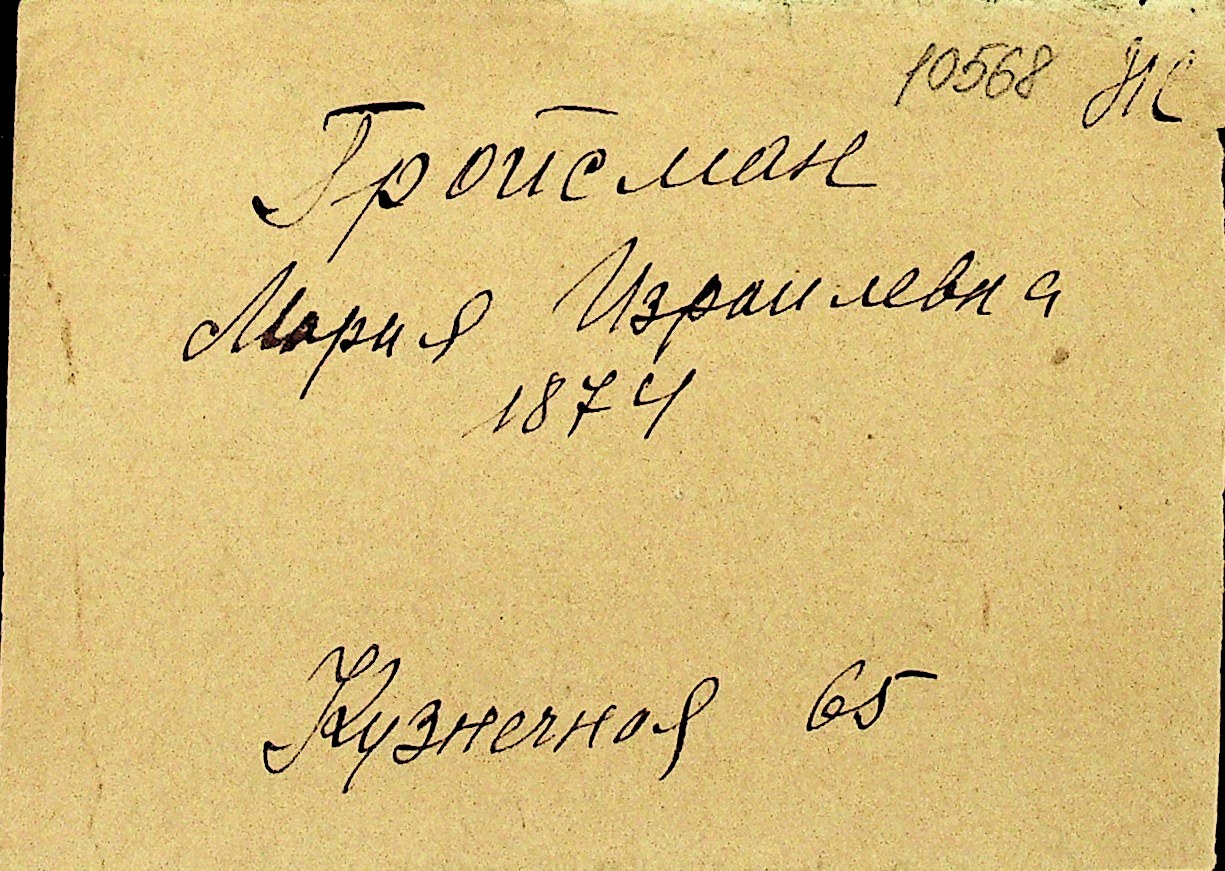 10568
Гройсман
Мария Израилевна
1874
Кузнечная 65